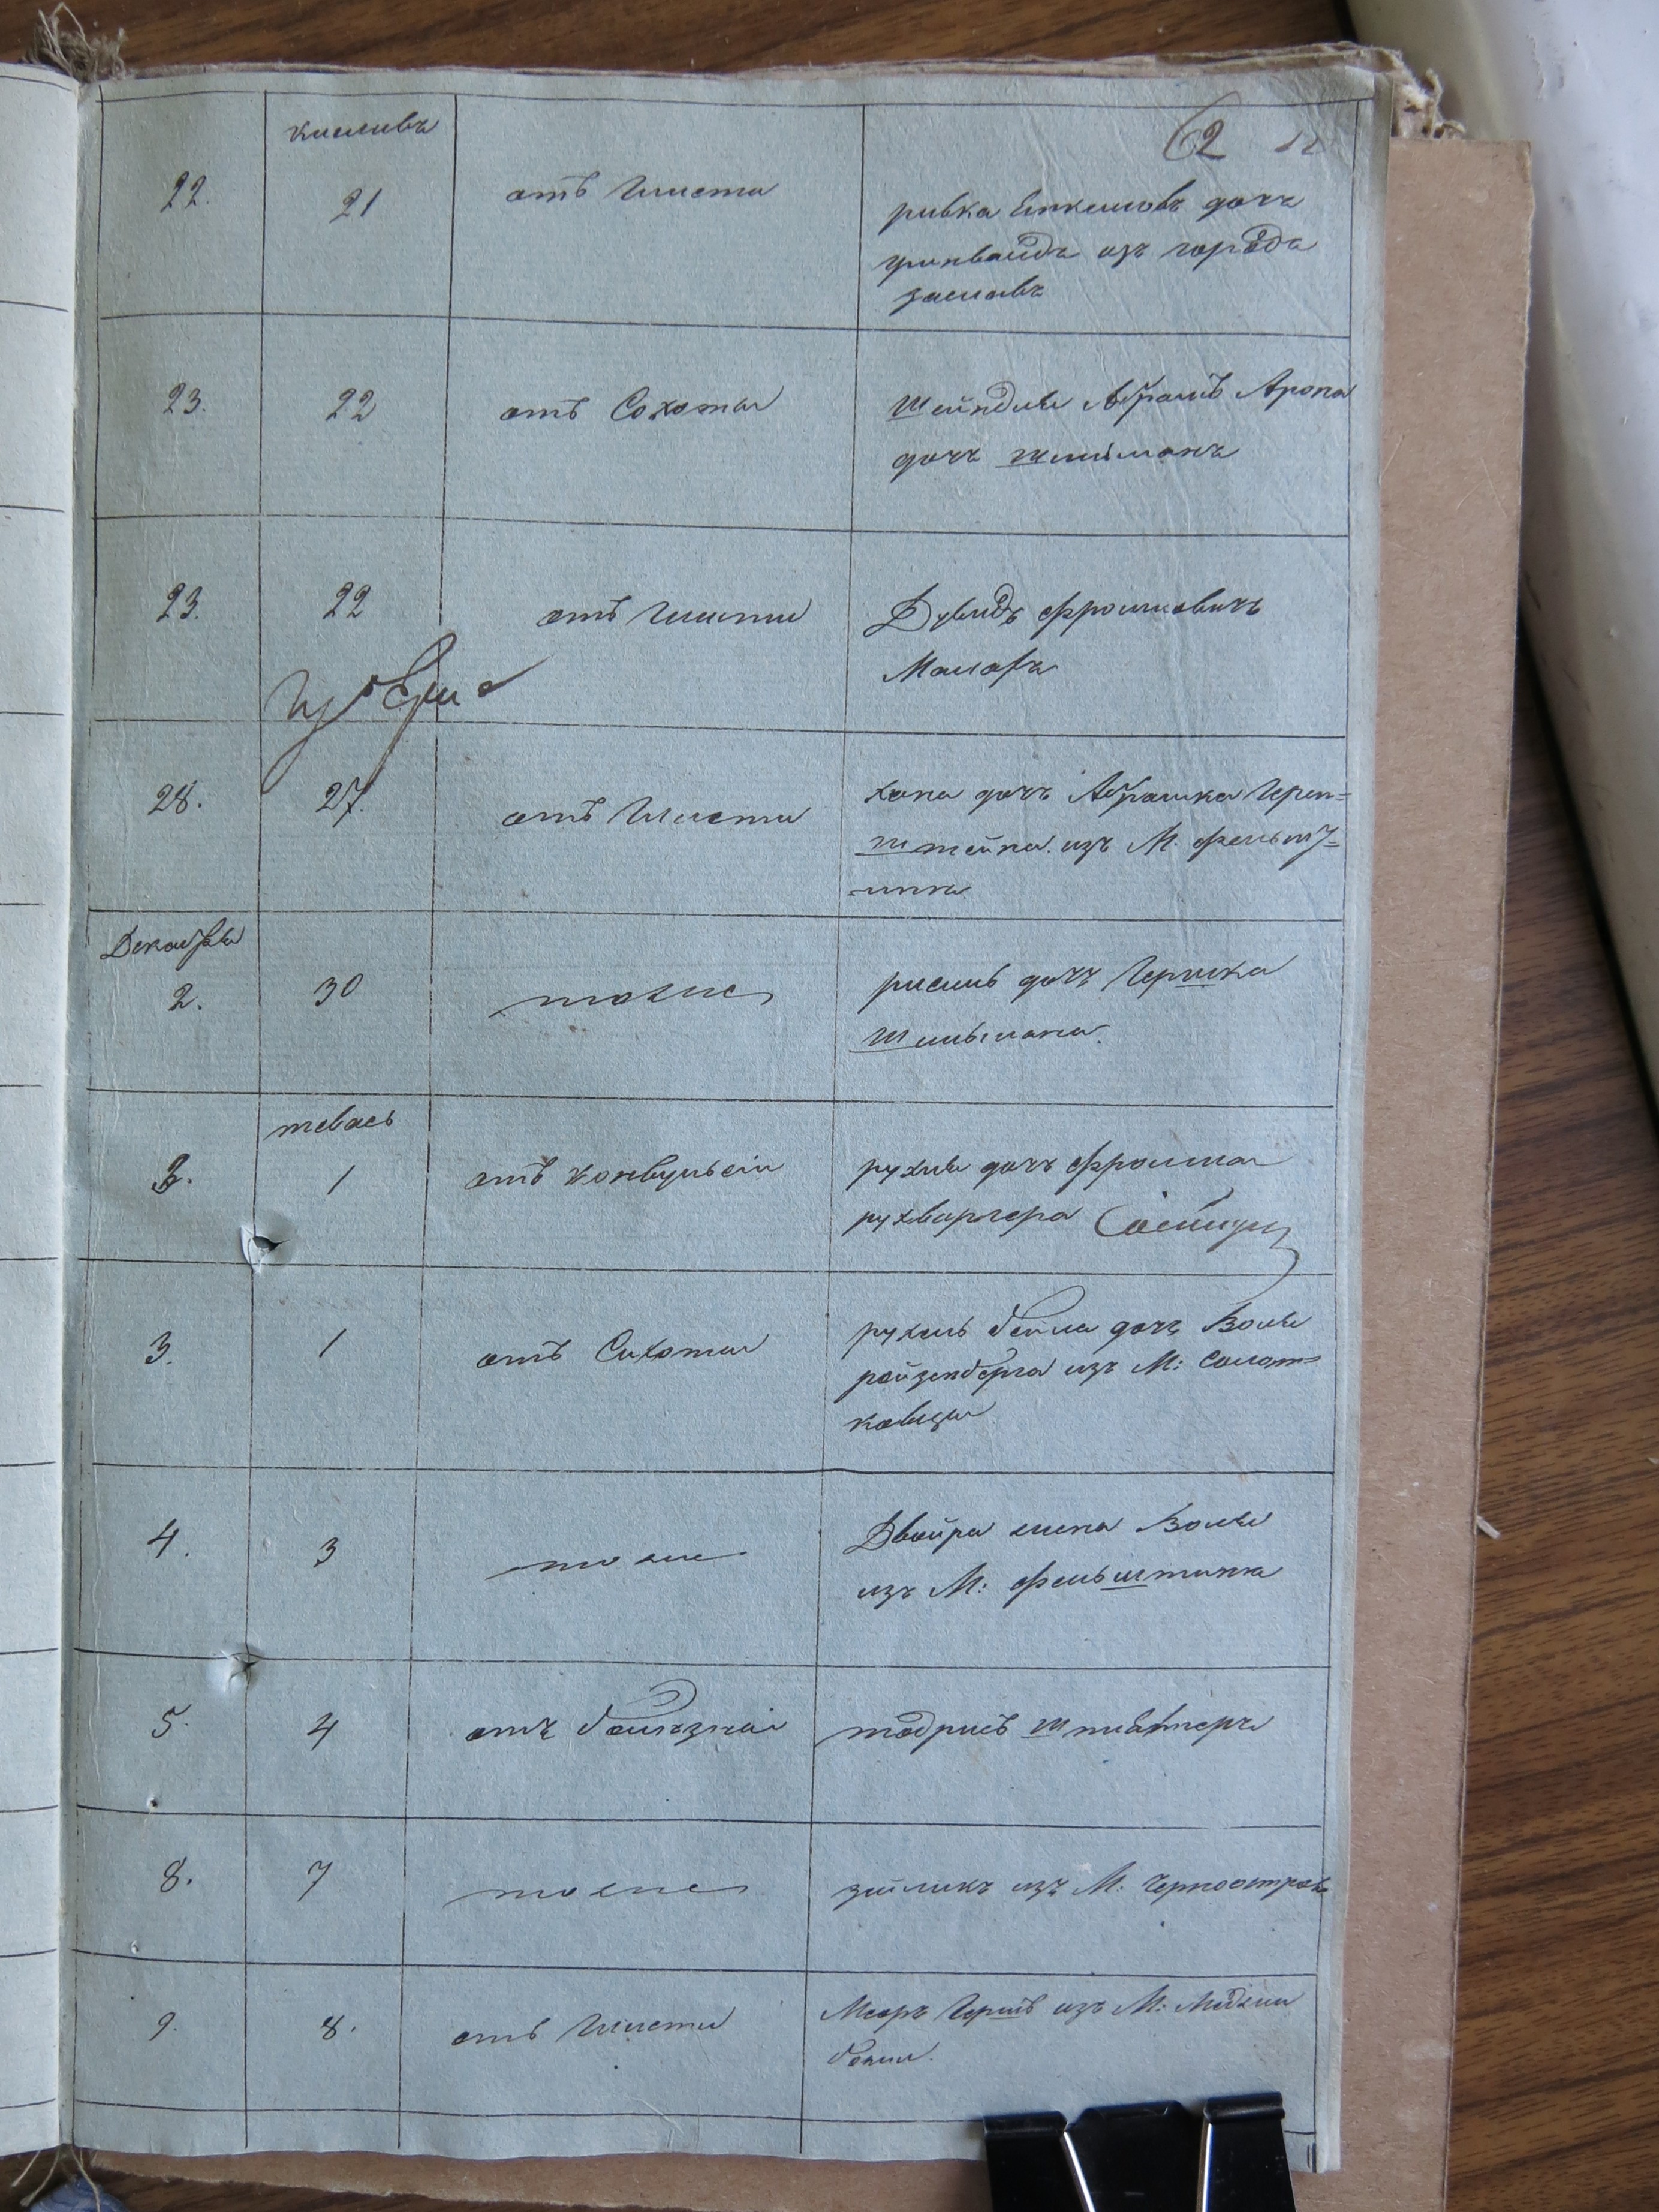 62
кисливъ
22. 21 отъ Чисти ривка Еикелиовъ дочь
гринвалда изъ города
заславъ
23. 22 отъ Сохоты шейндля Абрамъ Арона
дочь шлиманъ
23. 22 отъ Чисти Дувидъ Фроимовичъ
Маларъ
28. 27. отъ Чисти хана дочь Абрашка Герен=
штейна изъ М. Фельшт=
=ина
Декабря
2. 30 тоже рисиль дочь Гершка
шильмана.
тевесь
3. 1 отъ конвульсіи рухля дочь Фроима
рухваргера
3. 1 отъ Сухоты рухель бейла дочь Воля
ройзенберга изъ М: Солот=
ковцы
4. 3 тоже Двойра жена Воля
изъ М: Фельштина
5. 4 отъ болезни тодрисъ
8. 7 тоже зейликъ изъ М: Черноостров
9. 8. отъ Чисти Меэръ Гершъ изъ М: Меджи
божи.